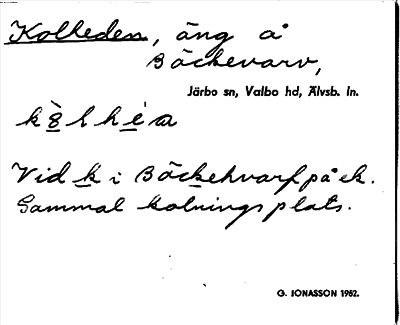 Kolheden, äng å
Bäckevarv,
Järbo sn, Valbo hd, Älvsb. ln.
k8̀lhéa
Vid k i Bäckehvarf på ek.
Gammal kolningsplats.
G. IONASSON 1962.